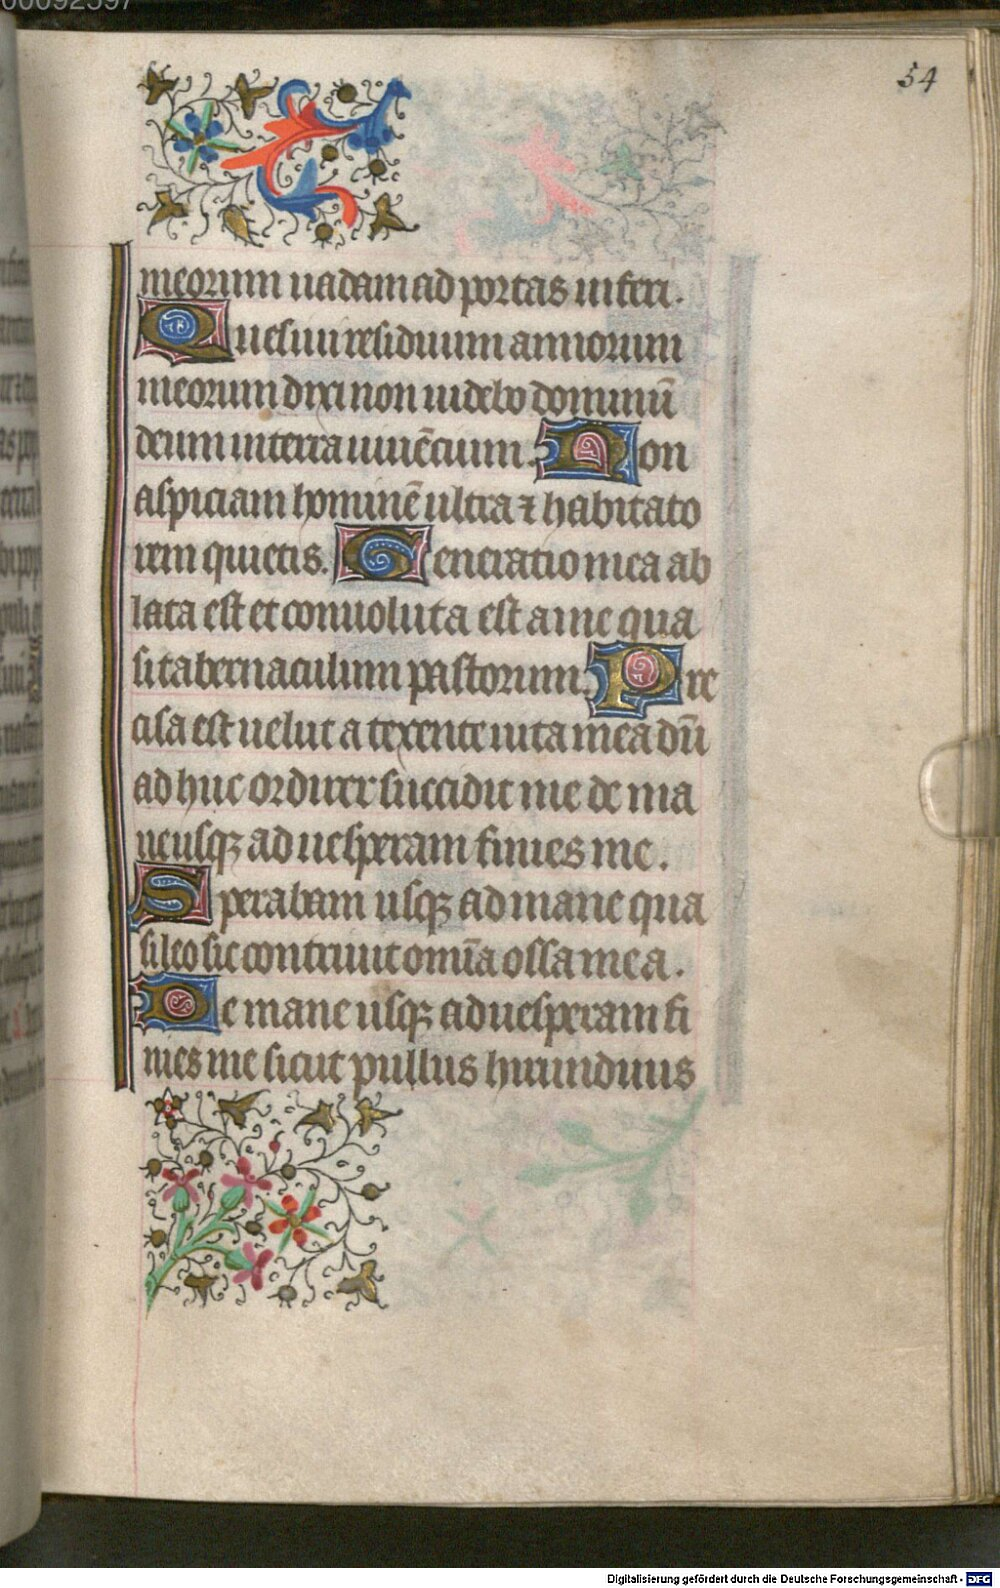 00092597
54
meorum uadam ad portas inferi.
Quesiui residuum annorum
meorum dixi non uidebo dominū
deum in terra uiuēcium. Non
aspiciam hominē ultra ⁊ habitato
rem quietis. Generatio mea ab
lata est et conuoluta est a me qua
si tabernaculum pastorum. Pre
cisa est uelut a texente uita mea dū
ad huc ordirer succidit me de ma
ne usqꝫ ad uesperam finies me.
Sperabam usqꝫ ad mane qua
si leo sic contriuit omīa ossa mea.
De mane usqꝫ ad uesperam fi
nies me sicut pullus hirundinis
Digitalisierung gefördert durch die Deutsche Forschungsgemeinschaft - DFG